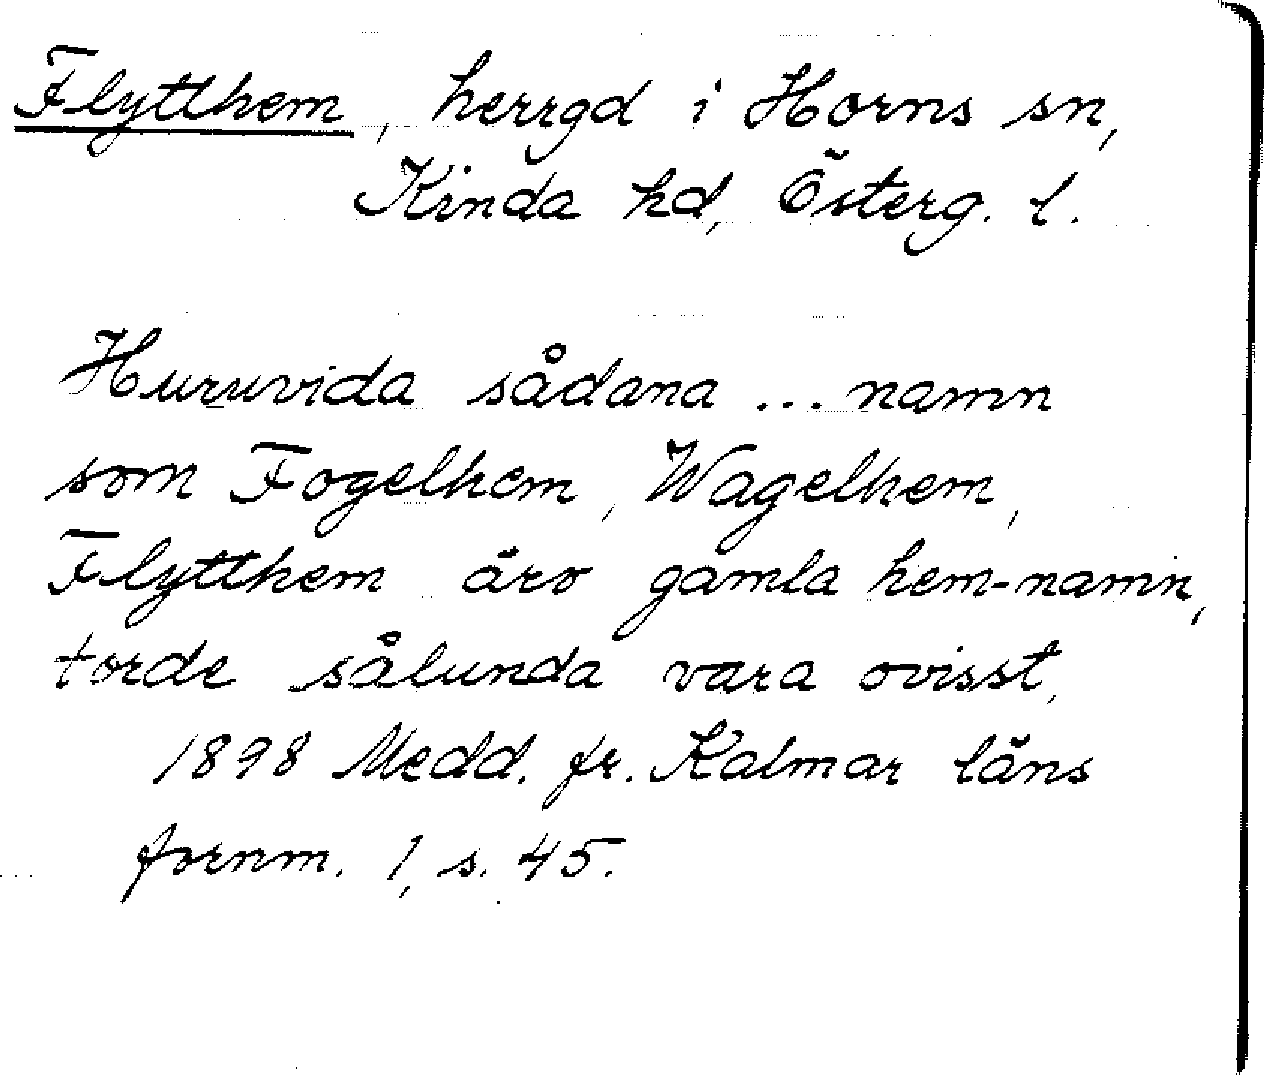 Flytthem, herrgd i Horns sn,
Kinda hd, Österg. l.
Huruvida sådana ... namn
som Fogelhem, Wagelhem,
Flytthem äro gamla hem-namn,
torde sålunda vara ovisst,
1898 Medd. fr. Kalmar läns
fornm. 1, s. 45.